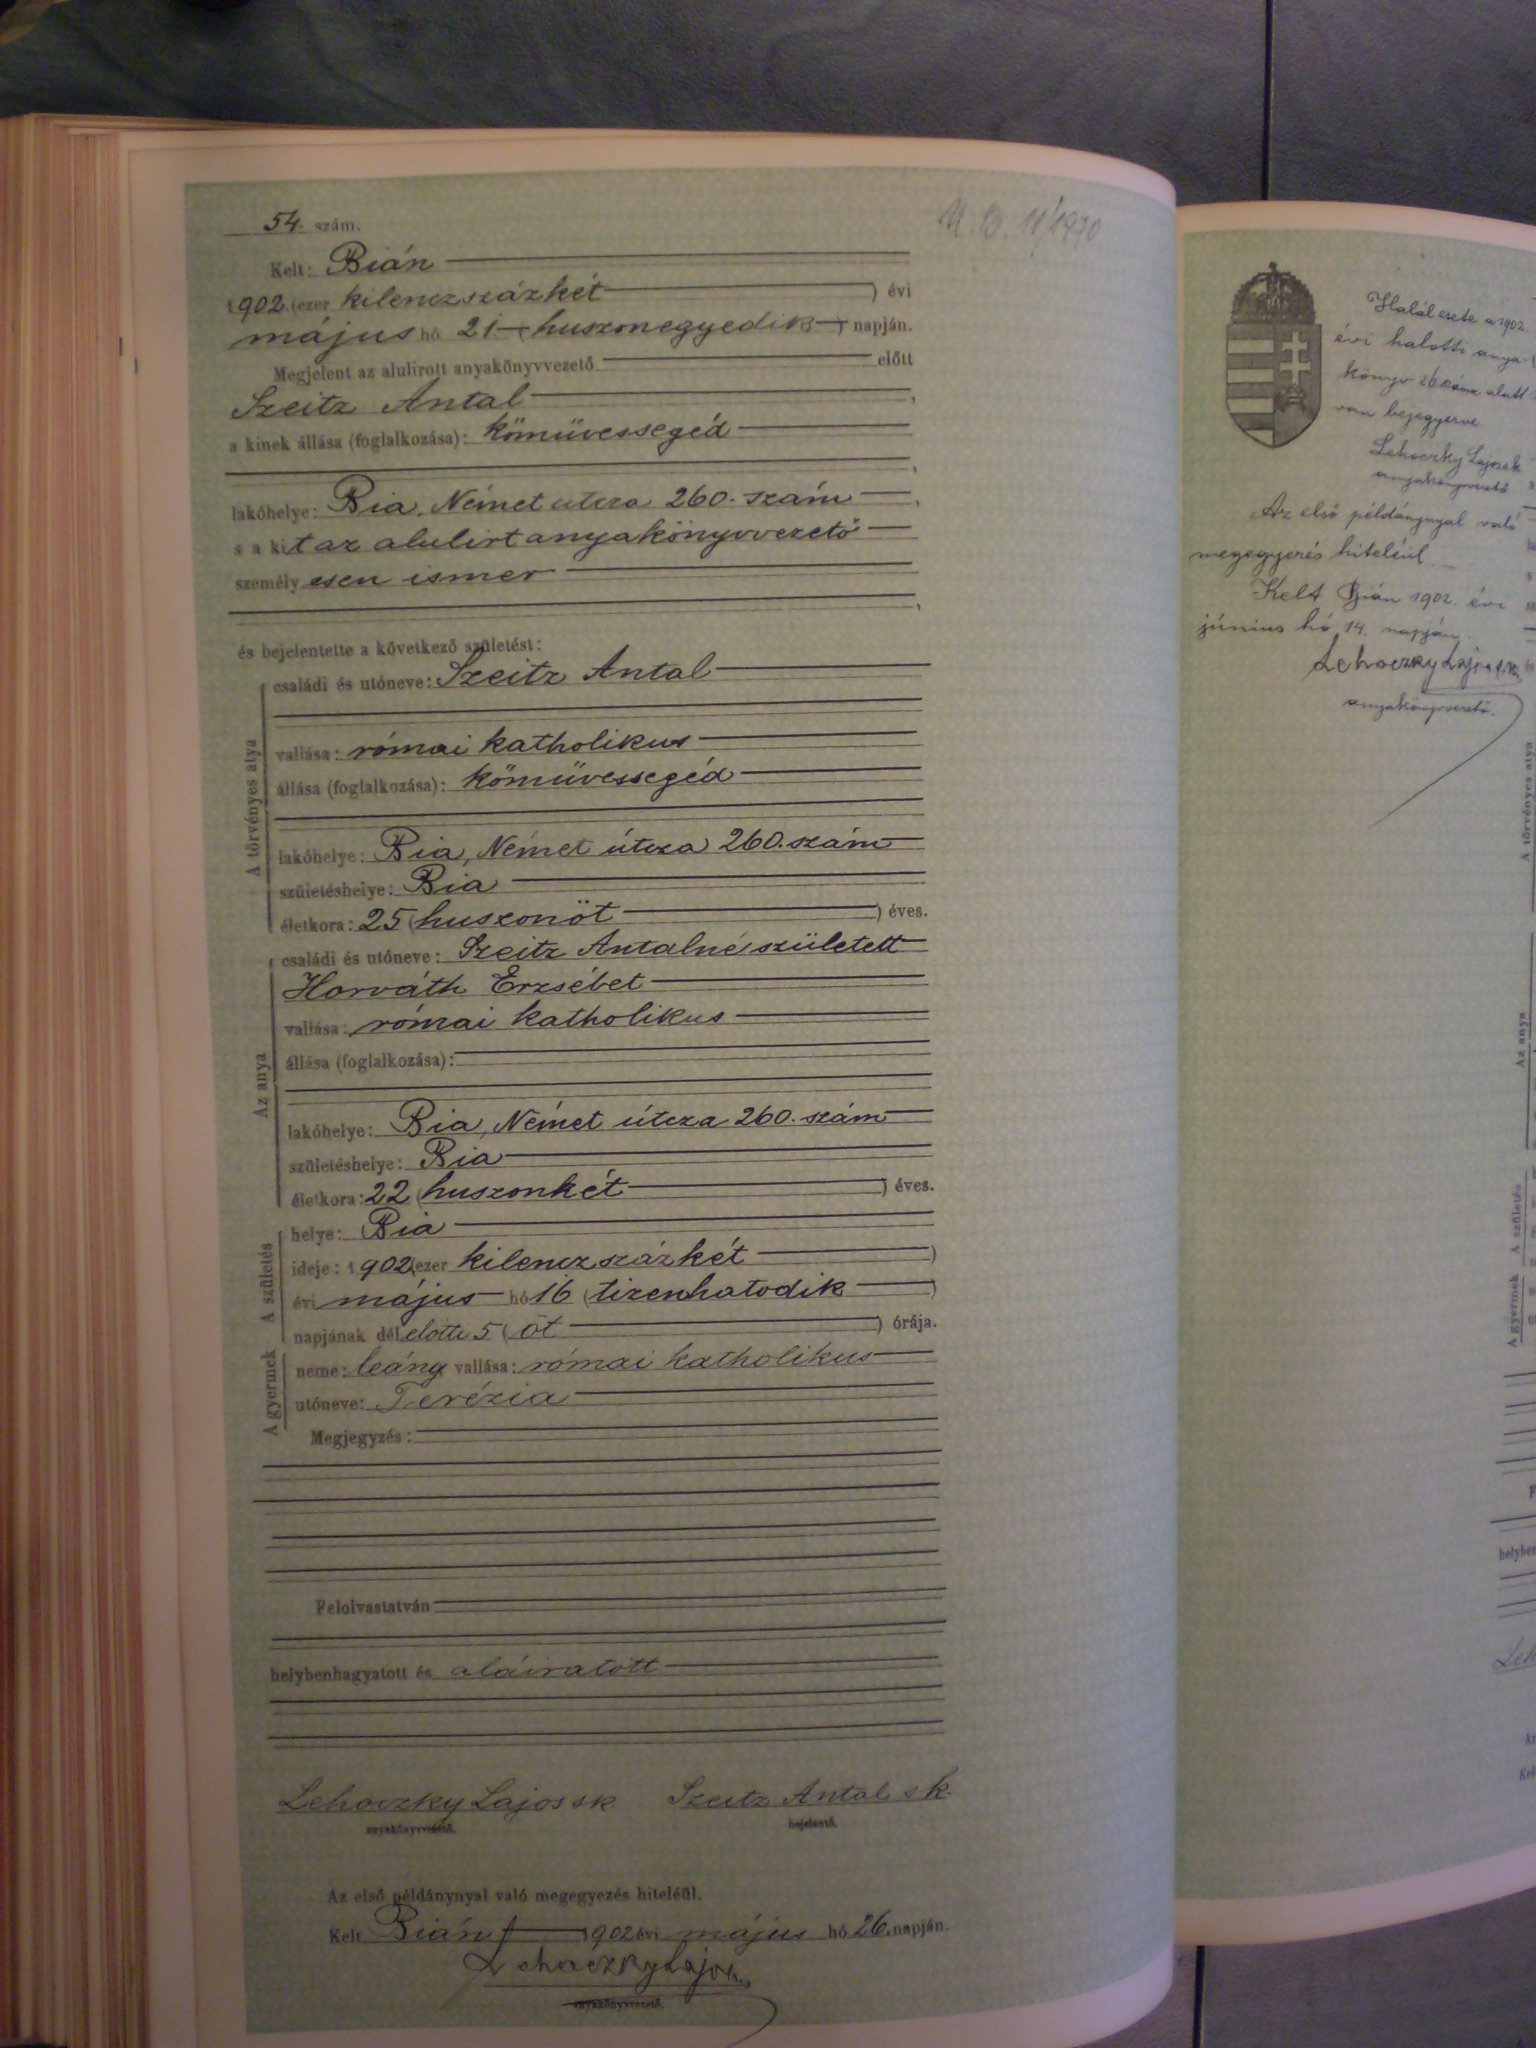 54. szám.
Kelt: Bián
1902. (ezer kilenczszázkét) évi
május hó 21 (huszonegyedik) napján.
Megjelent az alulirott anyakönyvvezető előtt
Szeitz Antal,
a kinek állása (foglalkozása): kőművessegéd
,
lakóhelye: Bia, Német utcza 260. szám,
s a kit az alulirt anyakönyvvezető
személyesen ismer
,
és bejelentette a következő születést:
A törvényes atya
családi és utóneve: Szeitz Antal
vallása: római katholikus
állása (foglalkozása): kőművessegéd
lakóhelye: Bia, Német útcza 260. szám
születéshelye: Bia
életkora: 25 (huszonöt) éves.
Az anya
családi és utóneve: Szeitz Antalné született
Horváth Erzsébet
vallása: római katholikus
állása (foglalkozása):
lakóhelye: Bia, Német útcza 260. szám
születéshelye: Bia
életkora: 22 (huszonkét) éves.
A születés
helye: Bia
ideje: 1902 (ezer kilenczszázkét)
évi május hó 16 (tizenhatodik)
napjának délelőtti 5 (öt) órája.
A gyermek
neme: leány vallása: római katholikus
utóneve: Terézia
Megjegyzés:
Felolvastatván
helybenhagyatott és aláiratott
Lehoczky Lajos sk. Szeitz Antal sk.
anyakönyvvezető. bejelentő.
Az első példánynyal való megegyezés hiteléül.
Kelt Bián 1902 évi május hó 26. napján.
Lehoczky Lajos
anyakönyvvezető.
11/1970
Halálesete a 1902.
évi halotti anya-
könyv 26 száma alatt
van bejegyezve
Lehoczky Lajos sk
anyakönyvvezető
Az első példánynyal való
megegyezés hiteléül.
Kelt Bián 1902. évi
június hó 14. napján.
Lehoczky Lajos
anyakönyvvezető.
A törvényes atya
Az anya
A születés
A gyermek